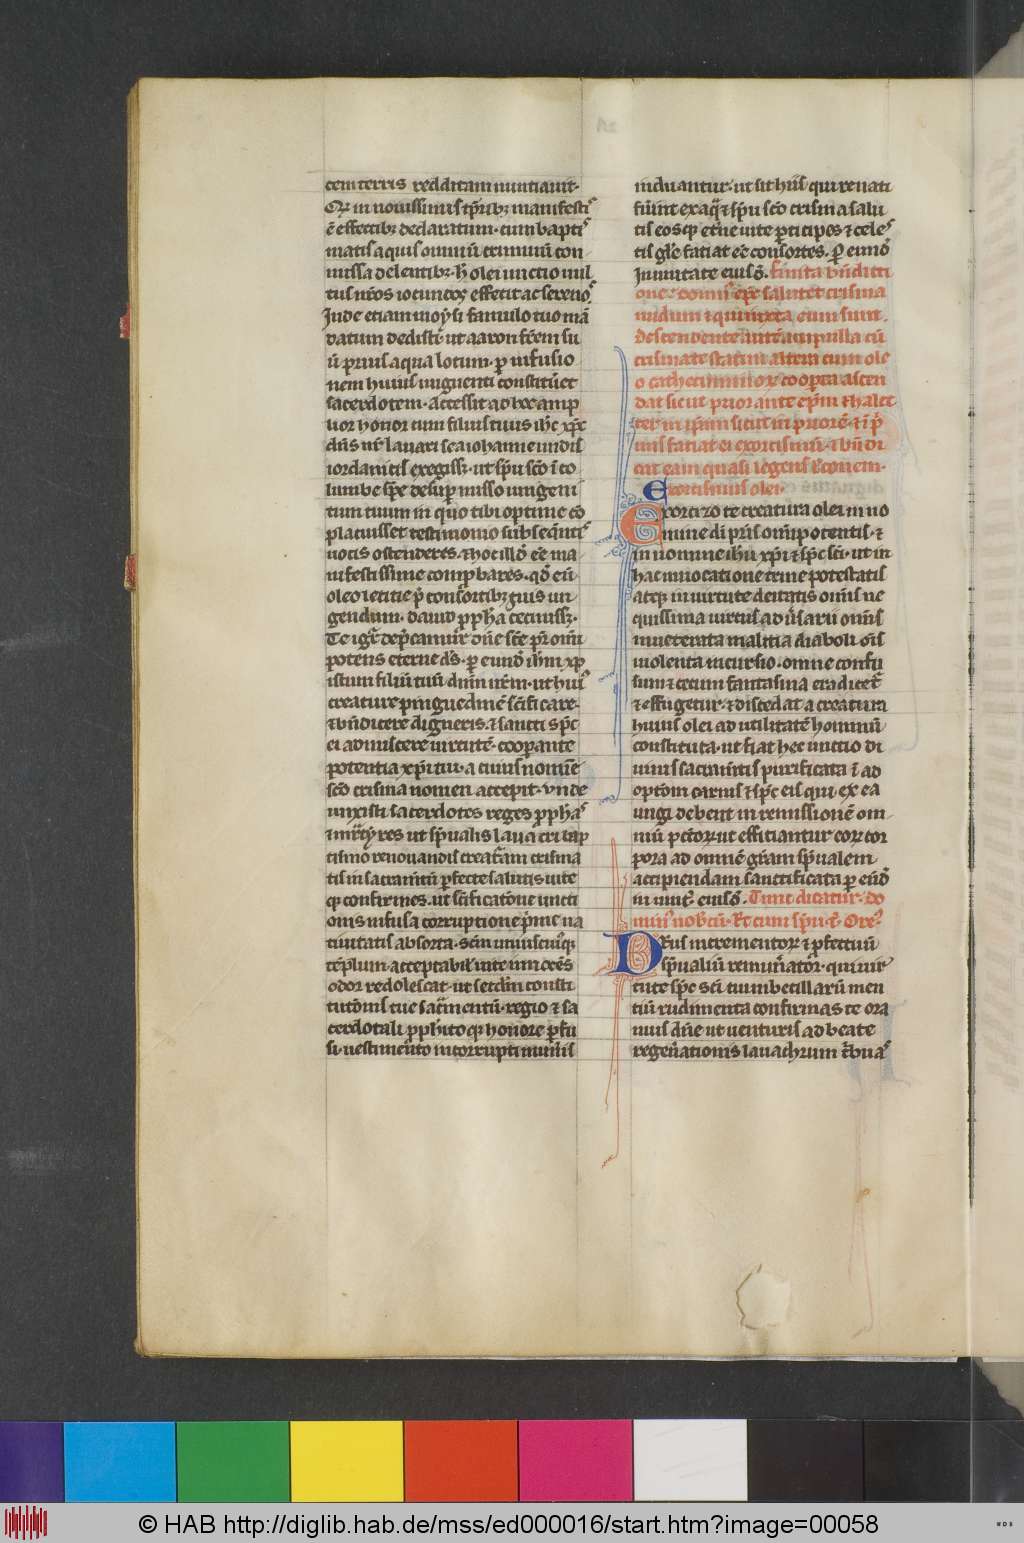 cem terris redditam nuntiavit·
Qꝛ in nouissimis tp̄ribꝫ manifesti⁹
ē effectibꝫ declaratum· cum bapti⁹
matis aquis omniū criminū com
missa delentibꝫ· h̄ olei unctio uul
tus nr̄os iocundos effecit ac serenos·
Inde etiam moysi famulo tuo mā
datum dedisti· ut aaron fr̄em su
ū prius aqua lotum· ꝑ infusio
nem huius unguenti constitūet
sacerdotem· Accessit ad hoc amp
lior honor cum filius tuus ih̄c xp̄c
dn̄s nr̄ lauari se a iohanne undis
iordanicis exegissꝫ· ut sp̄u sc̄o ī co
lumbe sp̄e desuꝑ misso unigeni
tum tuum in quo tibi optime cō
placuisset testimonio subseq̄nti⁹
uocis ostenderes· ⁊ hoc illđ ēe ma
nifestissime comprobares· qđ eū
oleo leticie p̄ consortibꝫ suis un
gendum· dauid ꝓph̄a cecinissꝫ·
Te igr̄ dep̄camur dn̄e sc̄e pr̄ om̄i
potens eterne ds̄· ꝑ eundē ih̄m xp̄
istum filiū tuū dn̄m nr̄m· ut hui⁹
creature pinguedinē sc̄ificare·
⁊ bn̄dicere digneris· ⁊ sancti sp̄c
ei admiscere uirtutē· cooꝑante
potentia xp̄i tui· a cuius nomīe
sc̄o crisma nomen accepit· vnde
unxisti sacerdotes reges ꝓph̄as
⁊ mr̄tyres ut sp̄ualis lauacri bap
tismo renouandis creat̄am crisma
tis in sacram̄tū ꝑfecte salutis uite
qꝫ confirmes· ut sc̄ificatōne uncti
onis infusa corruptione p̄me na
tiuitatis absorta· sc̄m uniuscuiꝰqꝫ
tēplum· acceptabil̄ uite innocēs
odor redolescat· ut sec̄dm consti
tutōnis tue sac̄mentū· regio ⁊ sa
cerdotali ꝓphīcoqꝫ honore ꝑfu
si· uestimēto incorrupti mūis
induantur· ut sit hiis qui renati
fūint ex aq̄ ⁊ sp̄u sc̄o crisma salu
tis eosqꝫ etn̄e uite ꝑticipes ⁊ cele⁹
tis gl̄e faciat ēe consortes· ꝑ eundē
In unitate eiusđ· Finita bn̄dicti
one domn⁹ ep̄c salutet crisma
nudum ⁊ qui iuxta eum sunt·
descendente autē ampulla cū
crismate statim altera cum ole
o cathecuminoꝝ cooꝑta ascen
dat sicut prior ante ep̄m ⁊ halet
ter in ip̄am sicut in priorē· ⁊ ī p̄
mis faciat ei exorcismū· ⁊ bn̄di
cat eam quasi legens l̄cōnem·
Exorcismus olei·
Exorcizo te creatura olei in no
mine di pr̄is om̄ipotentis· ⁊
in nomine ih̄u xp̄i ⁊ sp̄c sc̄i· ut in
hac inuocatione trine potestatis
atqꝫ in uirtute deitatis om̄is ne
quissima uirtus aduersarii om̄is
inueterata malitia diaboli om̄is
uiolenta incursio· omne confu
sum ⁊ cecum fantasma eradicet̄
⁊ effugetur· ⁊ discedat a creatura
huius olei ad utilitatē hominū
constituta· ut fiat hec unctio di
uinis sacram̄tis purificata ī ad
optōm carnis ⁊ sp̄c eis qui ex ea
ungi debent in remissionē om
niū pc̄torꝝ ut efficiantur eoꝝ cor
pora ad omnē gr̄am sp̄ualem
accipiendam sanctificata ꝑ eūđ
in unit⁹ eiusđ· Tunc dicatur· do
min⁹ uob̄cū· Et cum sp̄u t̄· Ore⁹·
Deus incrementoꝝ ⁊ ꝓfectuū
sp̄ualiū remun̄ator· qui uir
tute sp̄c sc̄i tui imbecillarū men
tiū rudimenta confirmas te ora
mus dn̄e ut uenturis ad beate
regen̄ationis lauachrum t̄bua⁹
© HAB http://diglib.hab.de/mss/ed000016/start.htm?image=00058